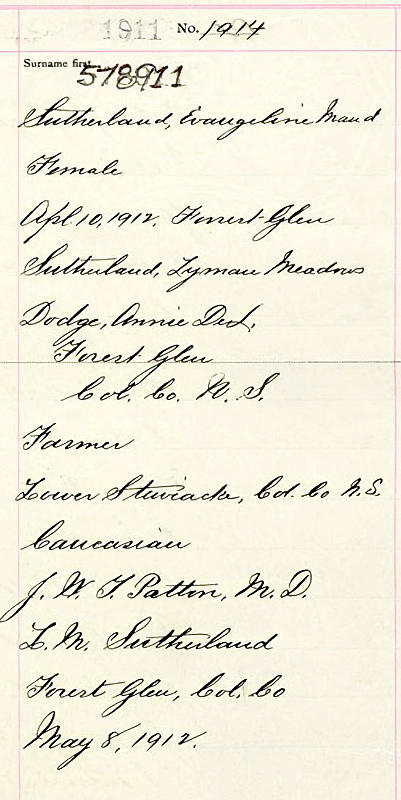 1911 No. 1914
Surname first.
578911
Sutherland, Evangeline Maud
Female
Apl. 10, 1912. Forrest Glen
Sutherland, Lyman Meadows
Dodge, Annie
Forest Glen
Col. Co. N. S.
Farmer
Lower Stewiacke, Col. Co N.S.
Caucasian
J. W. T. Patton, M.D.
L. M. Sutherland
Forest Glen, Col. Co
May 8, 1912.